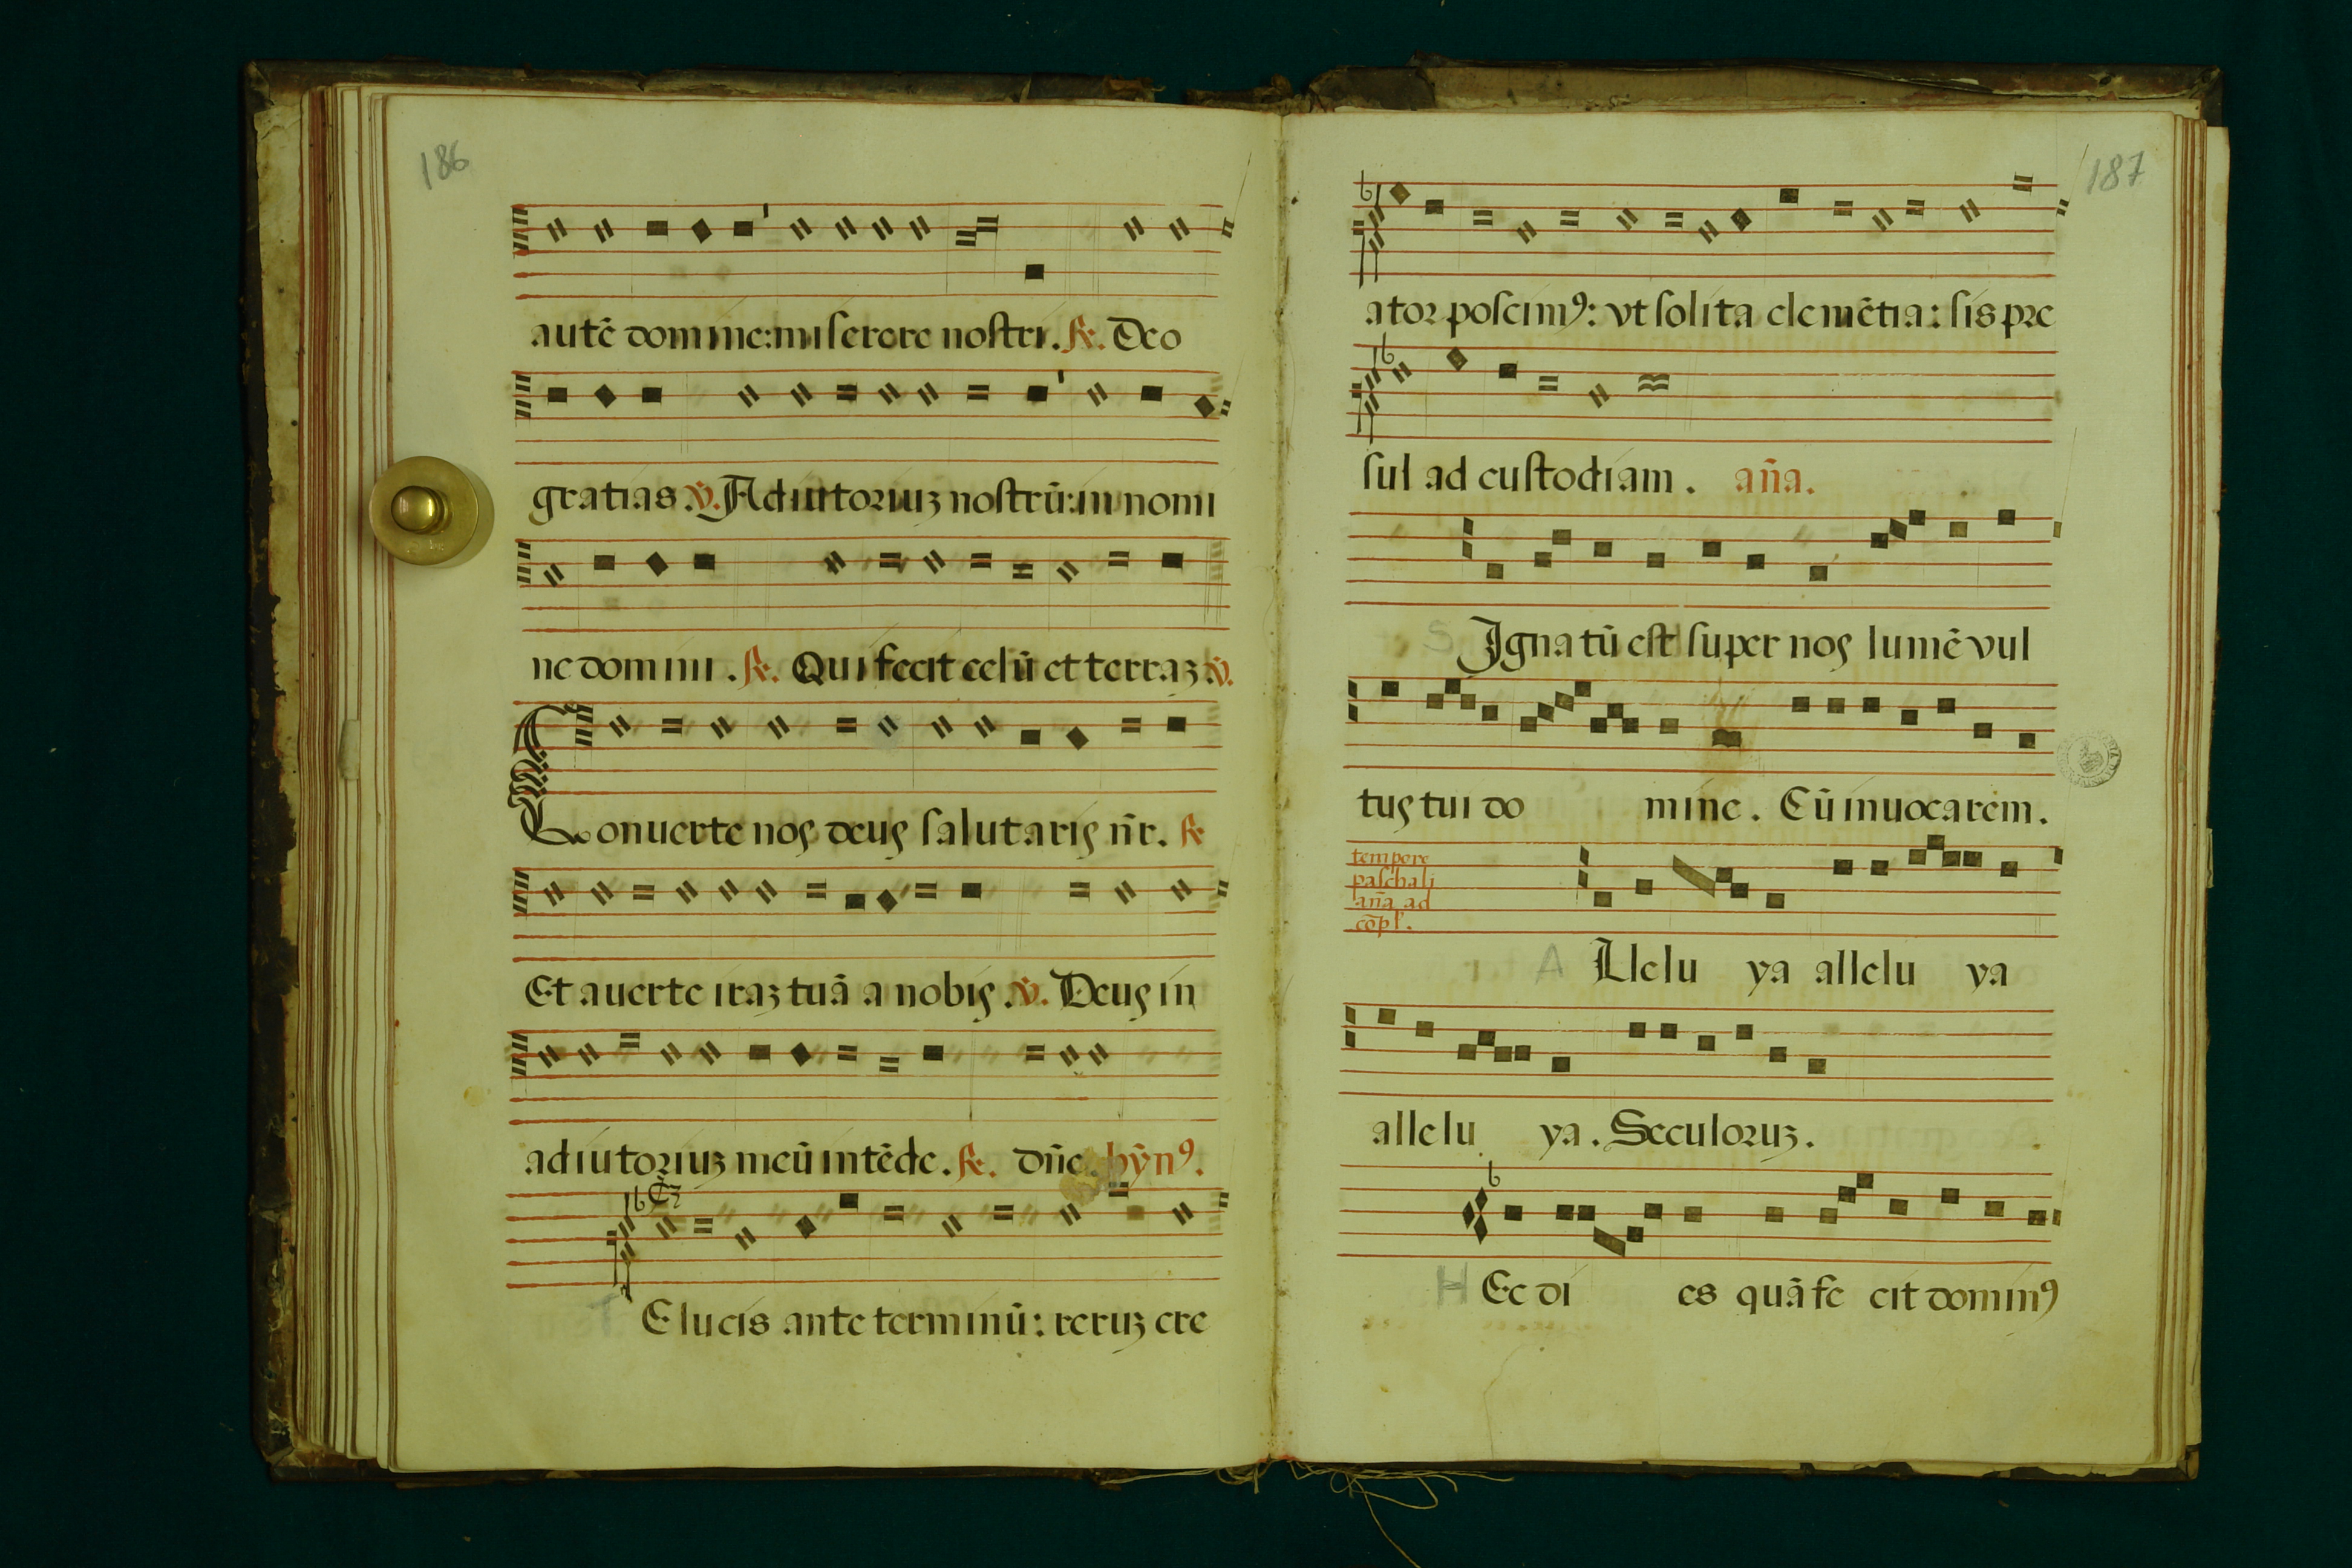 186
autē domine: miserere nostri. ℟. Deo
gratias ℣. Adiutoriuʒ nostrū: in nomi
ne domini. ℟. Qui fecit celū et terraʒ ℣.
Conuerte nos deus salutaris n̄r. ℟
Et auerte iraʒ tuā a nobis. ℣. Deus in
adiutoriuʒ meū intēde. ℟. dn̄e. hỹnꝰ.
T E lucis ante terminū: reruʒ cre
187
ator poscimꝰ: vt solita clemētia: sis pre
sul ad custodiam. an̄a.
S Ignatū est super nos lumē vul
tus tui domine. Cū inuocarem.
tempore
paschali
an̄a ad
cōpl.
A Llelu ya allelu ya
allelu ya. Seculoruʒ.
H Ec di es quā fe cit dominꝰ